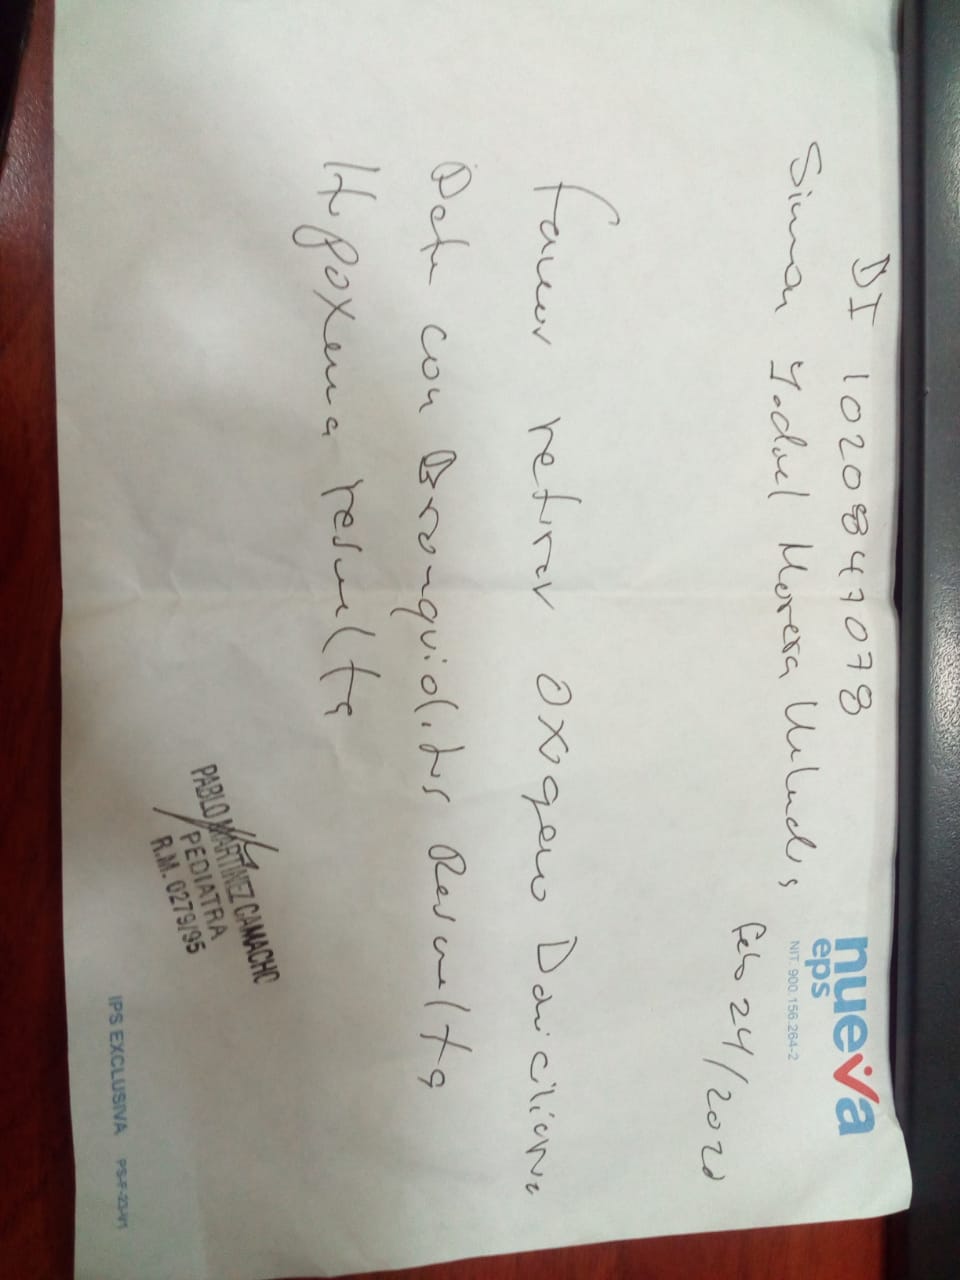 nueva
eps
NIT. 900.156.264-2
DI 1020847078
Simon Yaduel Morera
Feb 24/2020
Favor retirar oxigeno
con Bronquiolitis Resuelta
Hipoxemia resuelta
PABLO MARTINEZ CAMACHO
PEDIATRA
R.M. 0279/95
IPS EXCLUSIVA PS-F-23-V1